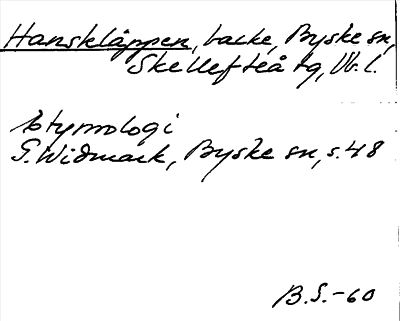 Hanskläppen, backe, Byske sn,
Skellefteå tg, Vb. l.
Etymologi
G. Widmark, Byske sn, s. 48
B.S. -60